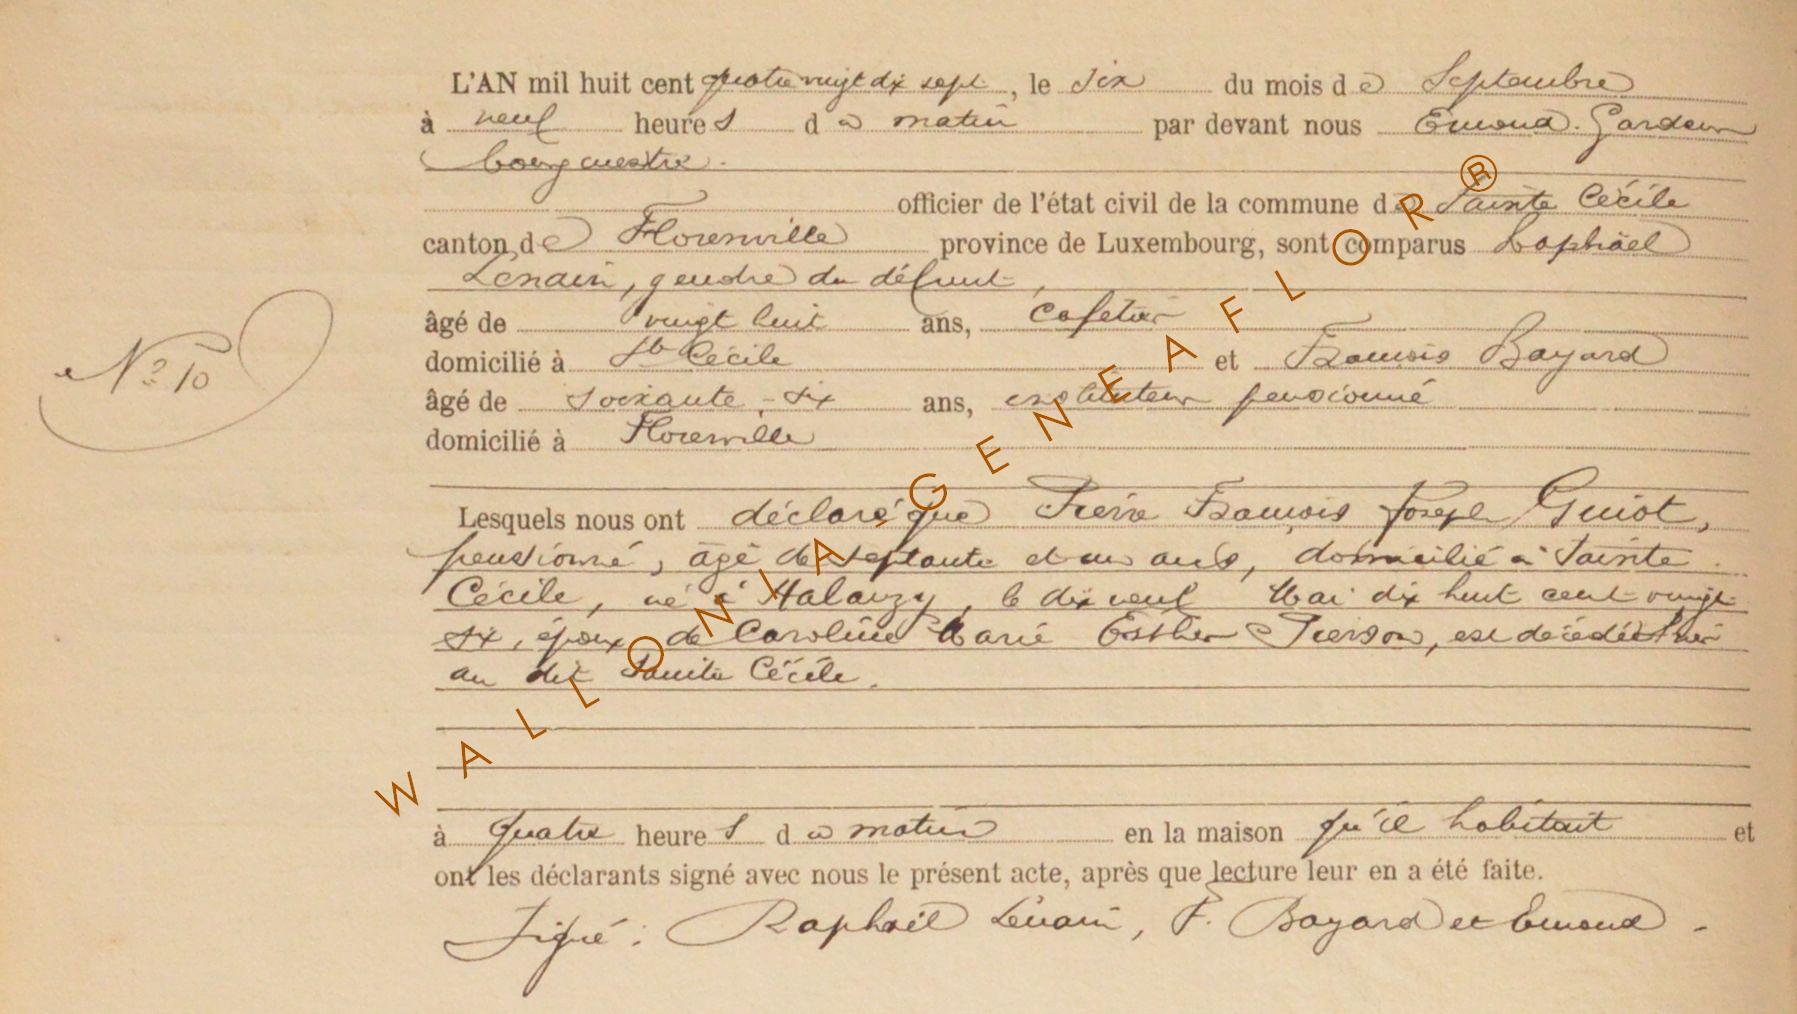 L'AN mil huit cent quatre vingt dix sept, le six du mois de Septembre
à neuf heures du matin par devant nous Emond. Gardeur
bourgmestre.
officier de l'état civil de la commune de Sainte Cécile
canton de Florenville province de Luxembourg, sont comparus Raphaël
Lenain, gendre du défunt,
âgé de vingt huit ans, cafetier
domicilié à Ste Cécile et François Bayard
âgé de soixante-six ans, instituteur pensionné
domicilié à Florenville
Nº 10
Lesquels nous ont déclaré que Pierre François Joseph Guiot,
pensionné, âgé de septante et un ans, domicilié à Sainte
Cécile, né à Halanzy, le dix neuf Mai dix huit cent vingt
six, époux de Caroline Marie Esther Pierson, est décédé hier
au dit Sainte Cécile.
à quatre heures du matin en la maison qu'il habitait et
ont les déclarants signé avec nous le présent acte, après que lecture leur en a été faite.
Signé: Raphaël Lenain, F. Bayard et Emond.
WALLONIA-GENEAFLOR®